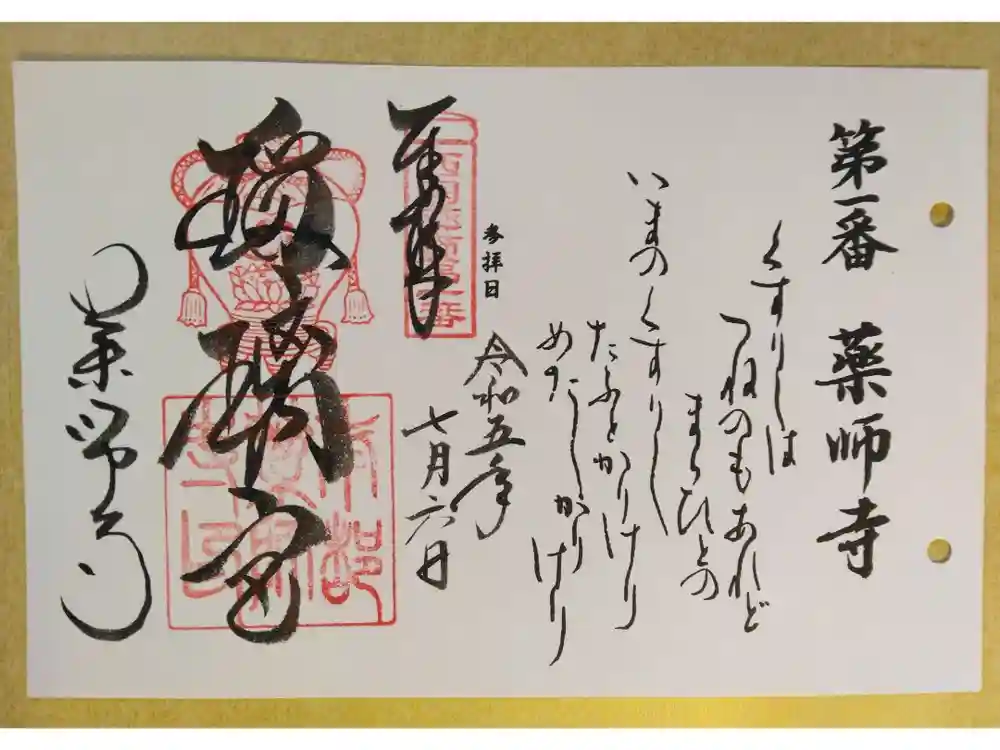 第一番　薬師寺
くすりしは
つねのもあれど
まらひとの
いまのくすりし
たふとかりけり
めだしかりけり
参拝日
令和五年
七月六日
奉拝
瑠璃宮
薬師寺